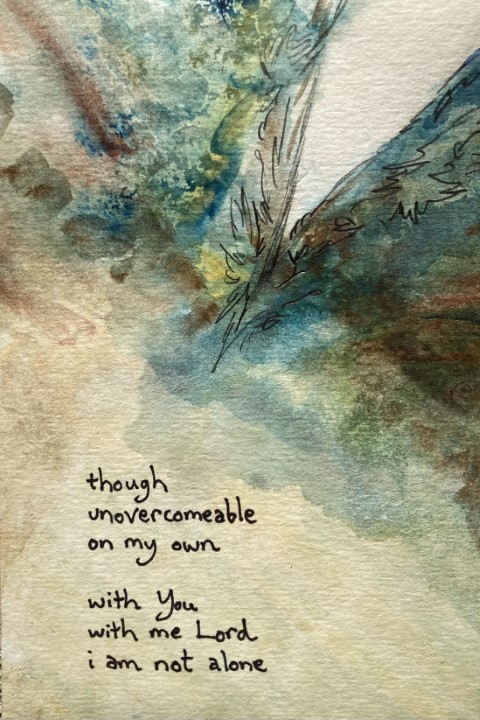 though
unovercomeable
on my own
with You
with me Lord
i am not alone